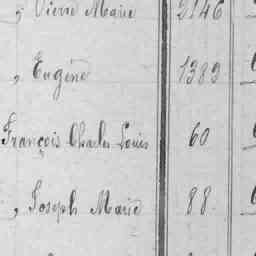 , Pierre Marie 2146
, Eugène 1389
François Charles Louis 60
, Joseph Marie 88